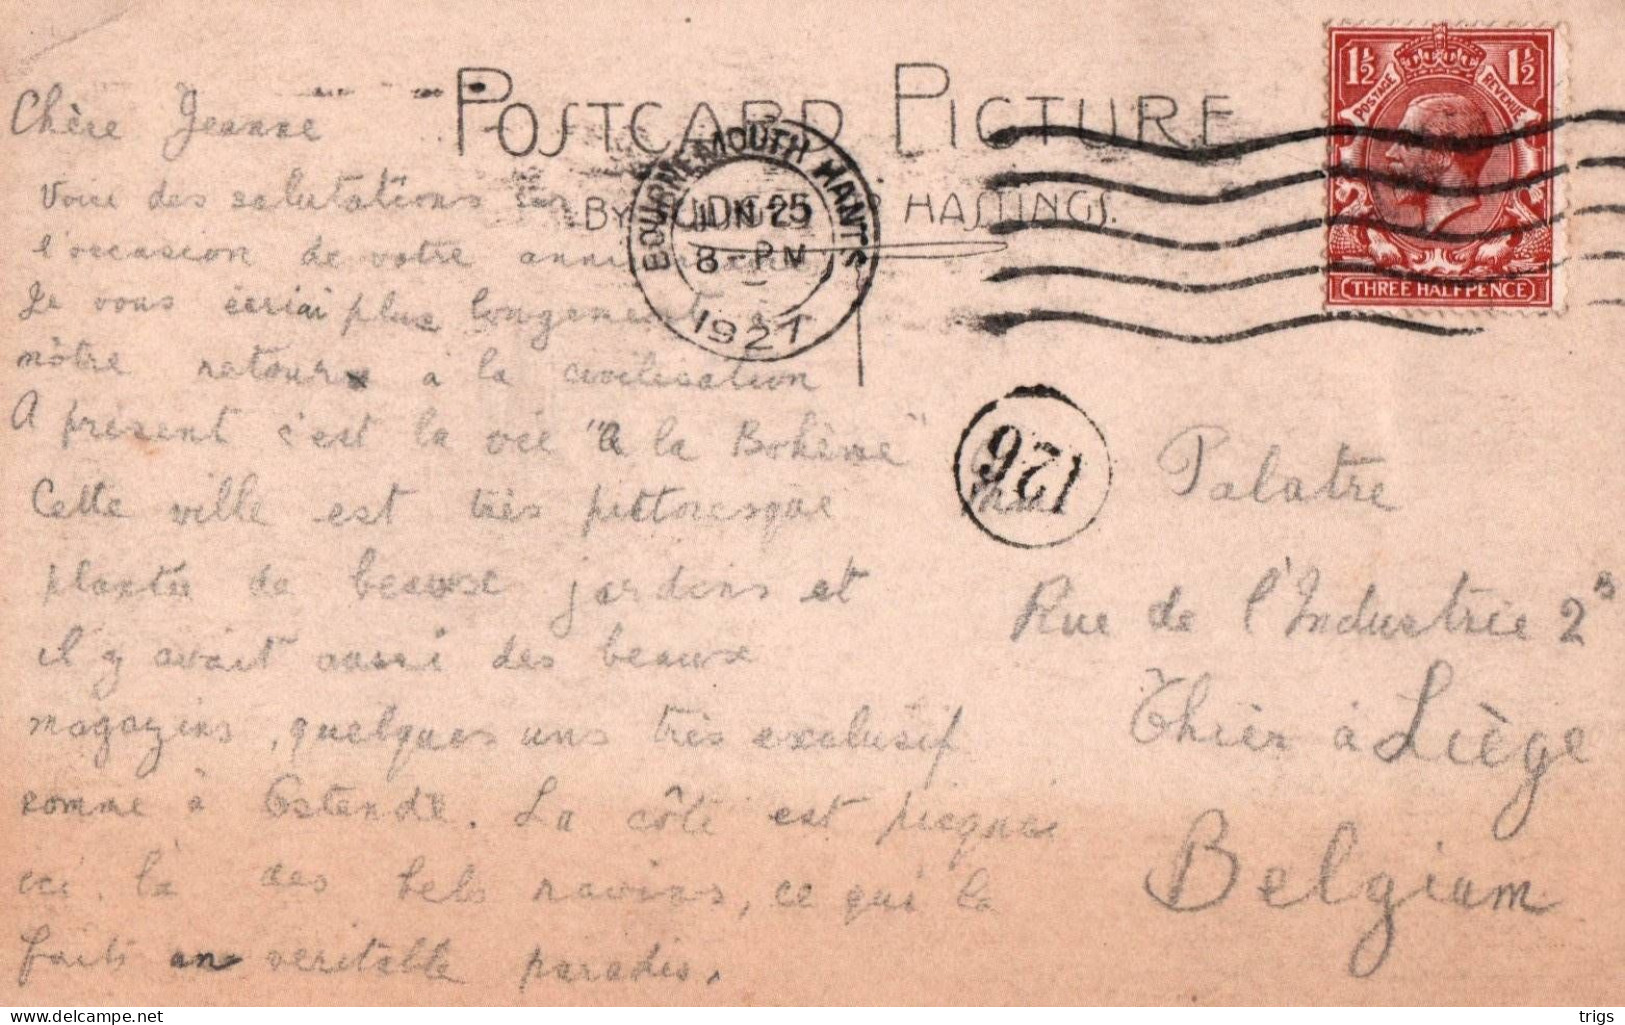 POSTCARD PICTURE
BY JUDGES LTD HASTINGS.
BOURNEMOUTH HANTS
JUN 25
8-PM
1927
1½ 1½
POSTAGE REVENUE
THREE HALFPENCE
126
Chère Jeanne
Voici des salutations
l'occasion de votre
Je vous écriai plus longement à
nôtre retour a la civilisation
A présent c'est la vie "a la Bohême"
Cette ville est très pittoresque
plantée de beaux jardins et
il y avait aussi des beaux
magazins, quelques uns très exclusif
comme à Ostende. La côte est
ici, là des bels ravins, ce qui la
faits un veritable paradis.
Palatre
Rue de l'Industrie 2
Thier à Liège
Belgium
trigs